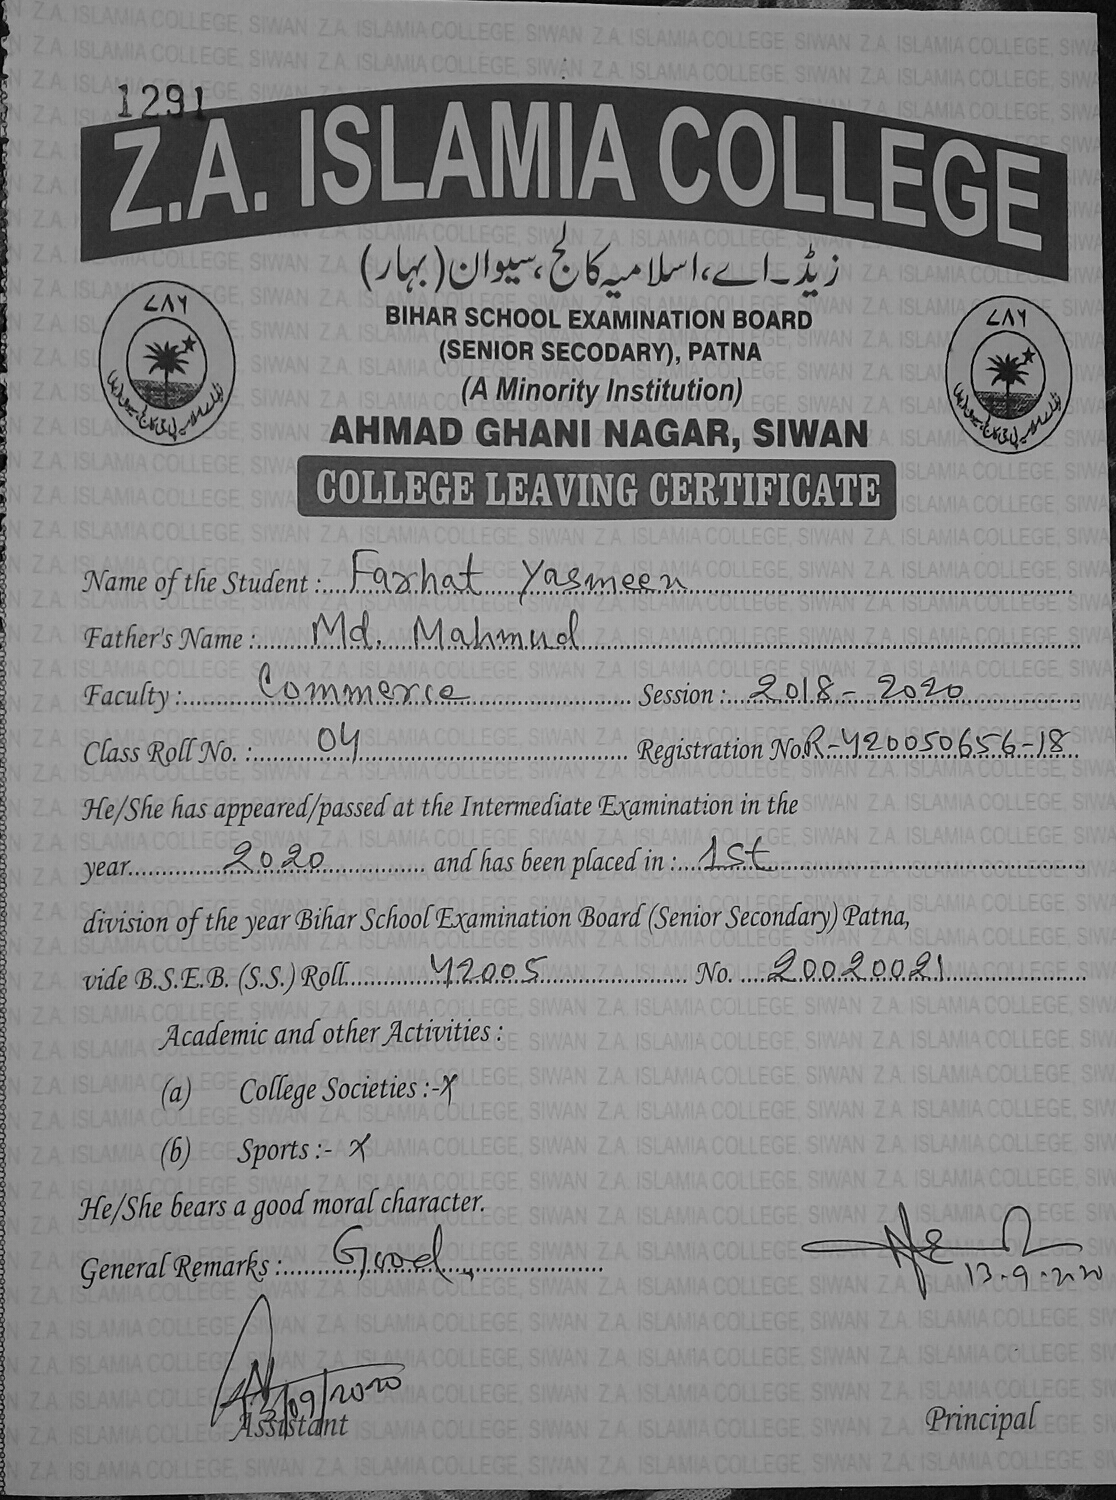 1291
Z.A. ISLAMIA COLLEGE
زیڈ۔اے، اسلامیہ کالج، سیوان (بہار)
٧٨٦
٧٨٦
BIHAR SCHOOL EXAMINATION BOARD
(SENIOR SECODARY), PATNA
(A Minority Institution)
AHMAD GHANI NAGAR, SIWAN
COLLEGE LEAVING CERTIFICATE
Name of the Student : Farhat Yasmeen
Father's Name : Md. Mahmud
Faculty : Commerce Session : 2018 - 2020
Class Roll No. : 04 Registration No. R-420050656-18
He/She has appeared/passed at the Intermediate Examination in the
year 2020 and has been placed in : 1st
division of the year Bihar School Examination Board (Senior Secondary) Patna,
vide B.S.E.B. (S.S.) Roll 42005 No. 20020021
Academic and other Activities :
(a) College Societies :- X
(b) Sports :- X
He/She bears a good moral character.
General Remarks : Good
13-9-2020
13/09/2020
Assistant Principal